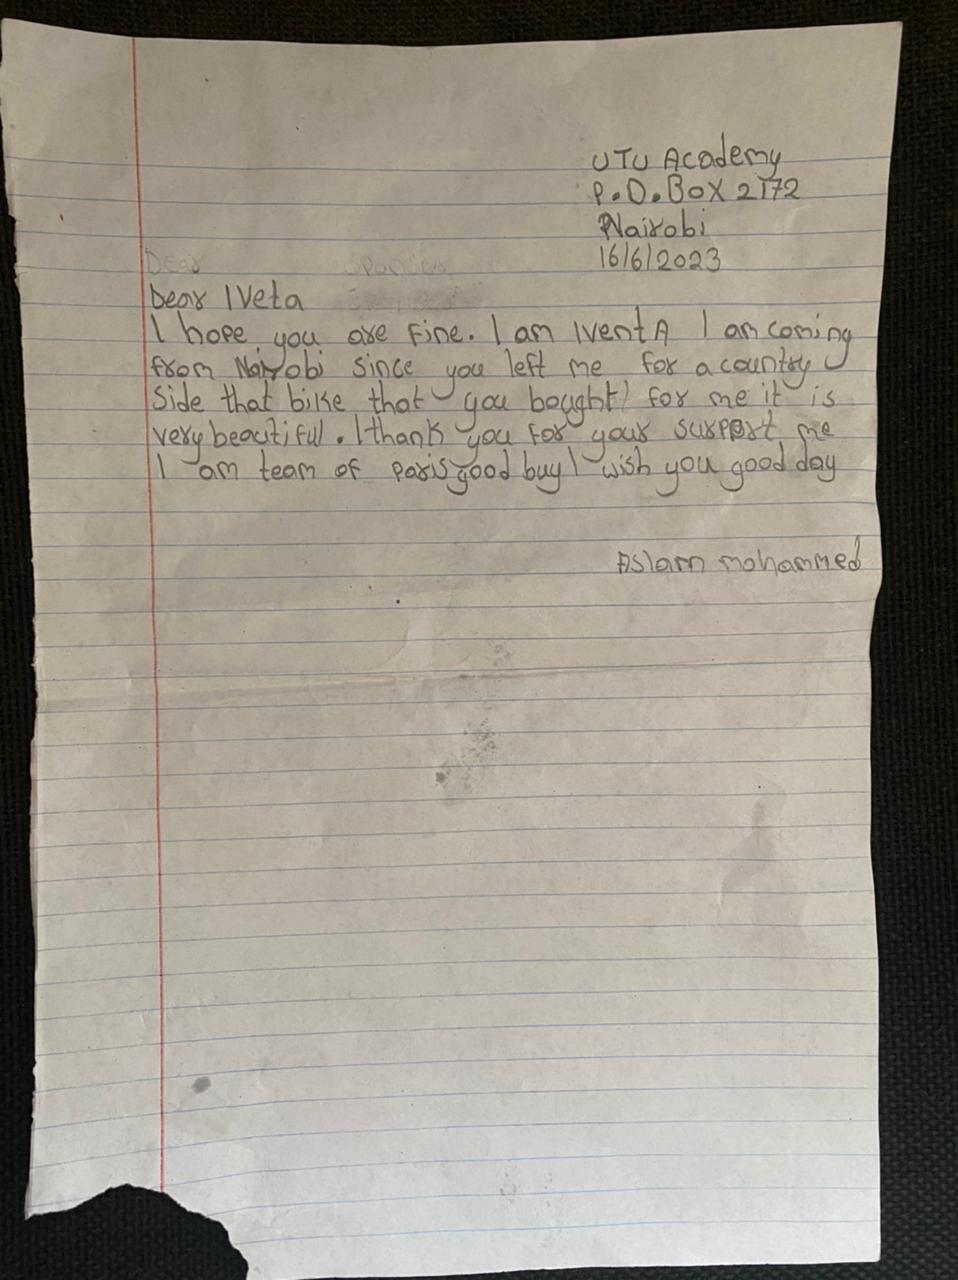 UTU Academy
P.O.BOX 2172
Nairobi
16/6/2023
Dear
Dear IVeta
I hope you are fine. I am IventA I am coming
from Nairobi since you left me for a country
Side that bike that you bought for me it is
very beautiful. I thank you for your surport me
I am team of paris good buy I wish you good day
Aslam mohammed